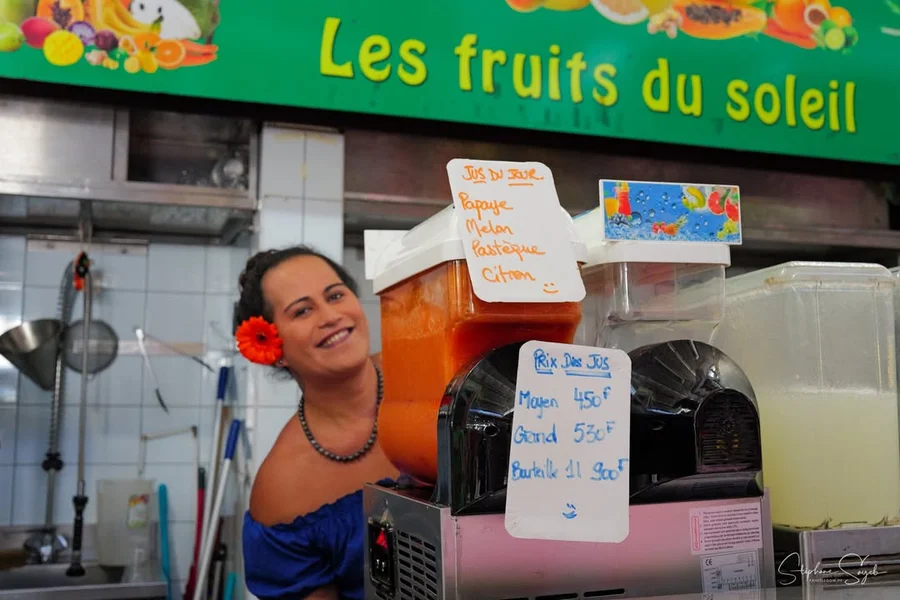 Les fruits du soleil
JUS DU JOUR
Papaye
Melon
Pastèque
Citron
PRIX DES JUS
Moyen 450F
Grand 530F
Bouteille 1l 900F